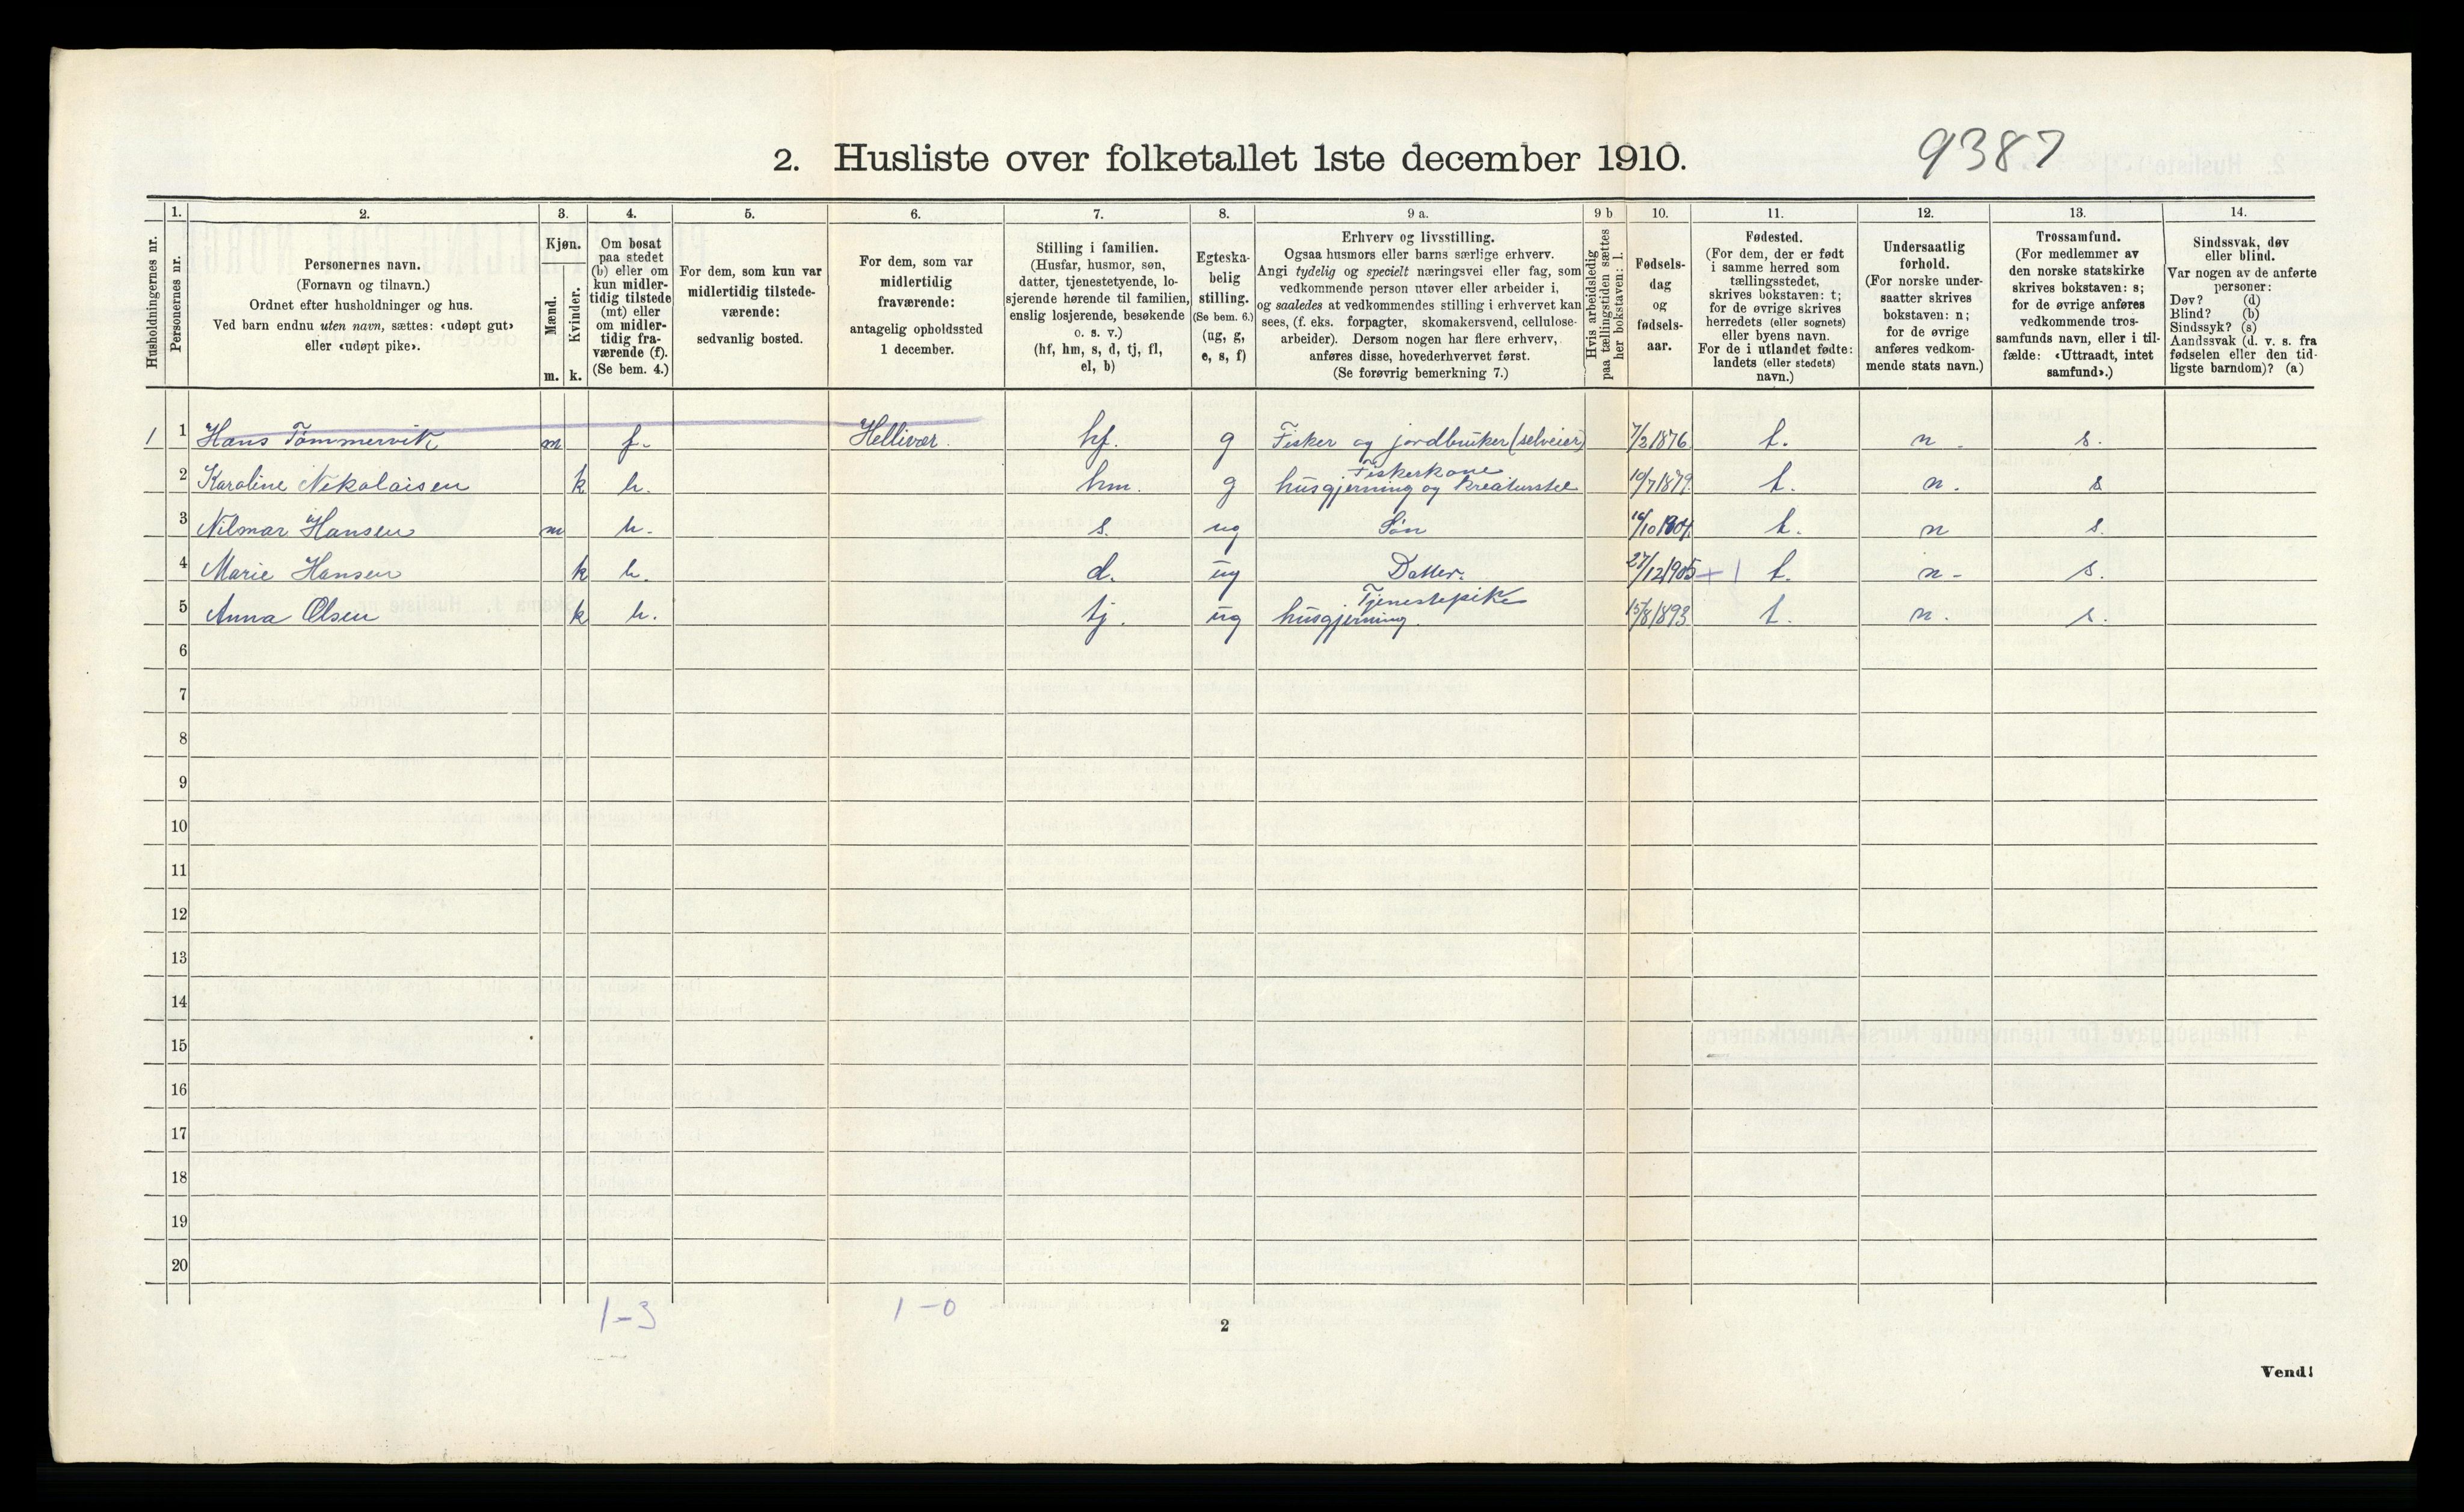 9387
2. Husliste over folketallet 1ste december 1910.
Husholdningernes nr.
1.
Personernes nr.
2.
Personernes navn.
(Fornavn og tilnavn.)
Ordnet efter husholdninger og hus.
Ved barn endnu uten navn, sættes: «udøpt gut»
eller «udøpt pike».
3.
Kjøn.
Mænd.
Kvinder.
m. k.
4.
Om bosat
paa stedet
(b) eller om
kun midler-
tidig tilstede
(mt) eller
om midler-
tidig fra-
værende (f).
(Se bem. 4.)
5.
For dem, som kun var
midlertidig tilstede-
værende:
sedvanlig bosted.
6.
For dem, som var
midlertidig
fraværende:
antagelig opholdssted
1 december.
7.
Stilling i familien.
(Husfar, husmor, søn,
datter, tjenestetyende, lo-
sjerende hørende til familien,
enslig losjerende, besøkende
o. s. v.)
(hf, hm, s, d, tj, fl,
el, b)
8.
Egteska-
belig
stilling.
(Se bem. 6.)
(ug, g,
e, s, f)
9 a.
Erhverv og livsstilling.
Ogsaa husmors eller barns særlige erhverv.
Angi tydelig og specielt næringsvei eller fag, som
vedkommende person utøver eller arbeider i,
og saaledes at vedkommendes stilling i erhvervet kan
sees, (f. eks. forpagter, skomakersvend, cellulose-
arbeider). Dersom nogen har flere erhverv,
anføres disse, hovederhvervet først.
(Se forøvrig bemerkning 7.)
9 b
Hvis arbeidsledig
paa tællingstiden sættes
her bokstaven: l.
10.
Fødsels-
dag
og
fødsels-
aar.
11.
Fødested.
(For dem, der er født
i samme herred som
tællingsstedet,
skrives bokstaven: t;
for de øvrige skrives
herredets (eller sognets)
eller byens navn.
For de i utlandet fødte:
landets (eller stedets)
navn.)
12.
Undersaatlig
forhold.
(For norske under-
saatter skrives
bokstaven: n;
for de øvrige
anføres vedkom-
mende stats navn.)
13.
Trossamfund.
(For medlemmer av
den norske statskirke
skrives bokstaven: s;
for de øvrige anføres
vedkommende tros-
samfunds navn, eller i til-
fælde: «Uttraadt, intet
samfund».)
14.
Sindssvak, døv
eller blind.
Var nogen av de anførte
personer:
Døv? (d)
Blind? (b)
Sindssyk? (s)
Aandssvak (d. v. s. fra
fødselen eller den tid-
ligste barndom)? (a)
1 1 Hans Tømmervik m f. Hellivær. hf. g Fisker og jordbruker (selveier) 7/2 1876 t. n. s.
Fiskerkone
2 Karoline Nikolaisen k b. hm. g husgjerning og kreaturstel 10/7 1879. t. n. s
3 Nilmar Hansen m b. s. ug Søn 16/10 1904. t. n s.
4 Marie Hansen k b. d. ug Datter. 27/12 1905 + 1 t. n. s.
Tjenestepike
5 Anna Olsen k b. tj. ug husgjerning. 15/8 1893 t. n. s.
6
7
8
9
10
11
12
13
14
15
16
17
18
19
20
1-3 1-0
2
Vend!